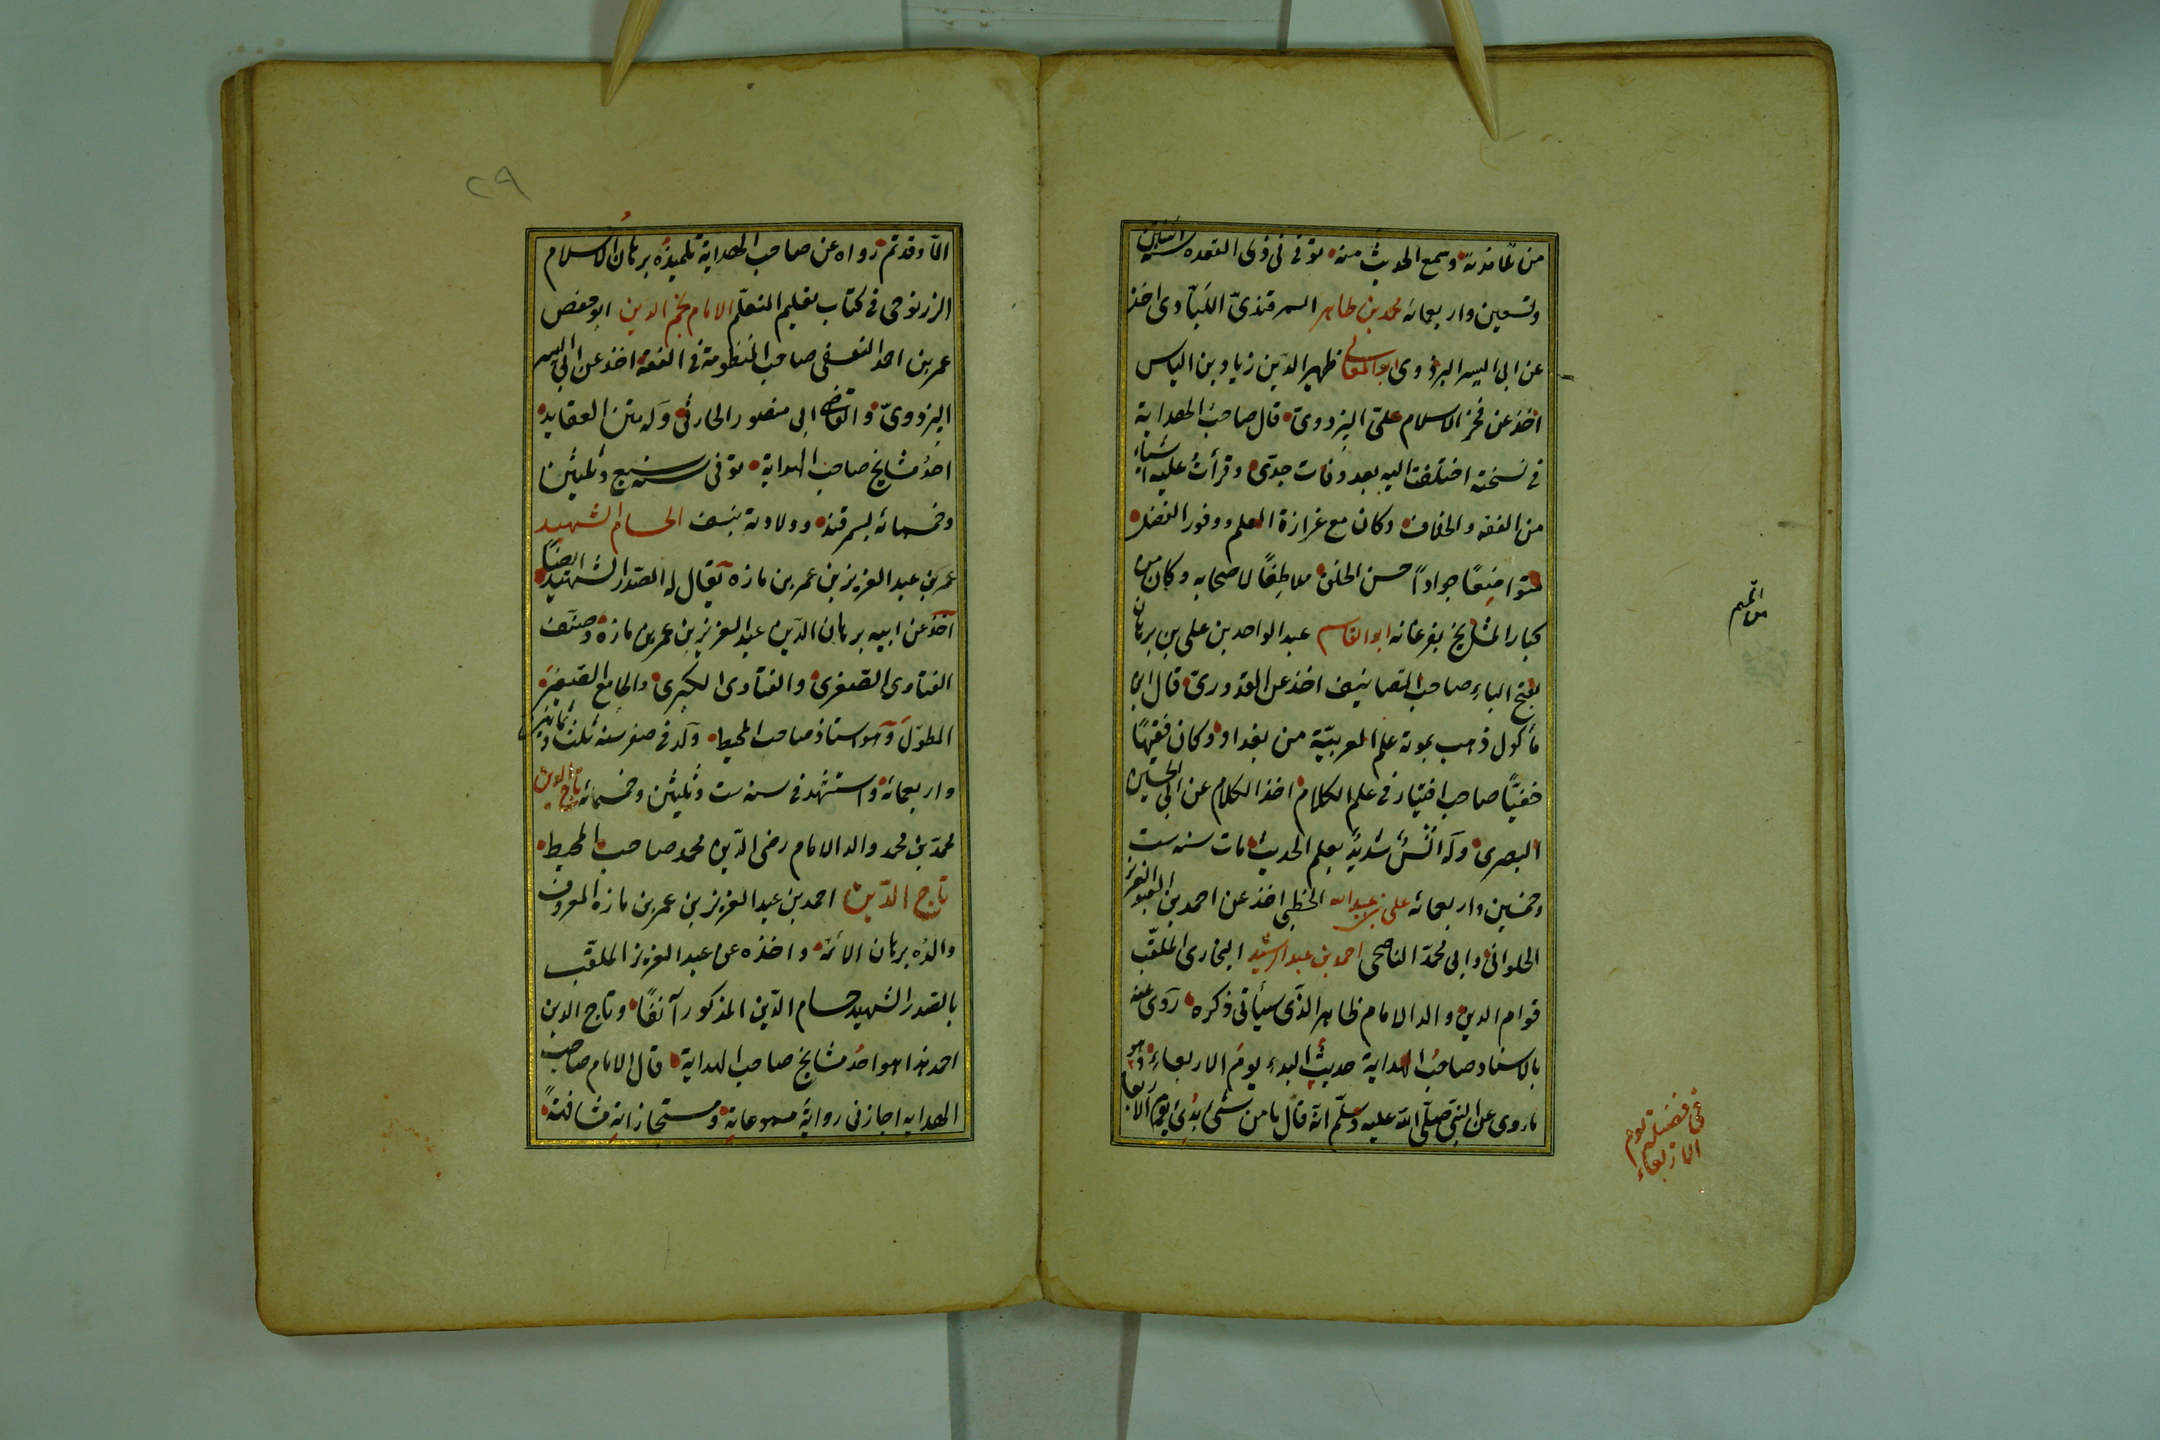 من تلامذته وسمع الحديث منه توفى فى ذى القعده سنة اثنتين
وتسعين واربعمائه محمد بن طاهر السمرقندىّ اللبّادى اخذ
عن ابى اليسر البزدوى ابو المعالى ظهير الدين زياد بن الياس
اخذ عن فخر الاسلام علىّ البزدوىّ قال صاحبُ الهداية
فى نسخته اختلفت اليه بعد وفات جدّى وقرأتُ عليه اشياء
من الفقه والخلاف وكان مع غزارة العلم ووفور الفضل
متواضِعًا جوادًا حسن الخلق ملاطِفًا لاصحابه وكان من
كبار المشايخ بفرغانه ابو القاسم عبد الواحد بن على بن برهان
بفتح الباء صاحب التصانيف اخذ عن القدورىّ قال ابن
مأكول ذهب بموته علم العربيّة من بغداد وكان فقيهًا
حنفيًّا صاحب اختيار فى علم الكلام اخذ الكلام عن ابى الحسين
البصرى وله انسٌ شديدٌ بعلم الحديث مات سنه ست
وخمسين واربعمائه على بن عبد الله الخطبى اخذ عن احمد بن عبد العزيز
الحلوانى وابى محمّد الناصحى احمد بن عبد الرشيد البخارى الملقّب
قوام الدين والد الامام طاهر الذّى سيأتى ذكره رَوَى عنه
بالاسناد صاحبُ الهداية حديثَ البدء يومَ الاربعاءِ وهو
ما روى عن النبىّ صلّى الله عليه وسلّم انّه قال ما من شئ بُدِئَ يوم الاربعا
فى فضيلة يوم
الاربعاء
٢٩
الّا وقد تم رواه عن صاحب الهداية تلميذُه برهان الاسلام
الزرنوجى فى كتاب تعليم المتعلّم الامام نجم الدين ابو حفص
عمر بن احمد النسفى صاحب المنظومة فى الفقه اخذ عن ابى اليسر
البزدوىّ والقاضى ابى منصور الحارثى وَله متن العقايد
احدُ مشايخ صاحب الهداية توفى سنه سبع وثلثين
وخمسمائه بسمرقند وولادته بنسف الحسام الشهيد
عمر بن عبد العزيز بن عمر بن مازه يُقال له الصّدر الشهيد ايضًا
اَخَذَ عن ابيه برهان الدّين عبد العزيز بن عمر بن مازه وصنّف
الفتاوى الصّغرى والفتاوى الكبرى والجامع الصّغير
المطوّل وَهو استاذ صاحب المحيط وُلد فى صفر سنه ثلث وثمانين
واربعمائه واستشهد فى سنه ست وثلثين وخمسمائه تاج الدين
محمّد بن محمد والد الامام رضى الدّين محمد صاحب المحيط
تاج الدّين احمد بن عبد العزيز بن عمر بن مازه المعروف
والدُه برهان الائمّه واخذه عن عبد العزيز الملقّب
بالصّدر الشهيد حسام الدّين المذكور آنفًا وتاج الدين
احمد هذا هو احدُ مشايخ صاحب الهداية قال الامام صاحب
الهدايه اجازنى روايَةَ مسموعاتِه ومستجازاتِه مشافهةً